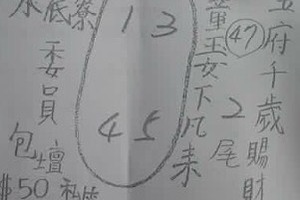 府千歲賜財
47
2尾
童玉女下凡来
1 3
4 5
底寮
委員
包壇
$50